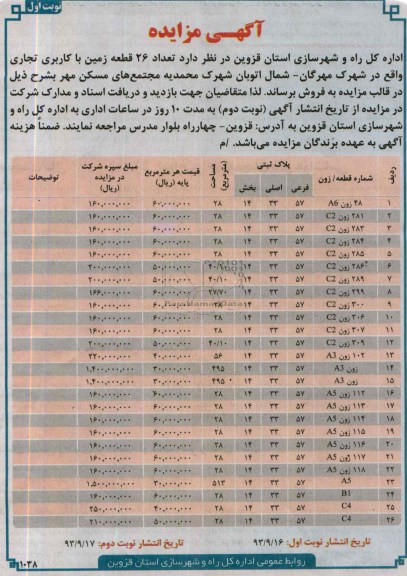 نوبت اول
آگهـی مزایده
اداره کل راه و شهرسازی استان قزوین در نظر دارد تعداد ۲۶ قطعه زمین با کاربری تجاری
واقع در شهرک مهرگان- شمال اتوبان شهرک محمدیه مجتمع‌های مسکن مهر بشرح ذیل
در قالب مزایده به فروش برساند. لذا متقاضیان جهت بازدید و دریافت اسناد و مدارک شرکت
در مزایده از تاریخ انتشار آگهی (نوبت دوم) به مدت ۱۰ روز در ساعات اداری به اداره کل راه و
شهرسازی استان قزوین به آدرس: قزوین- چهارراه بلوار مدرس مراجعه نمایند. ضمناً هزینه
آگهی به عهده برندگان مزایده می‌باشد. /م
ردیف شماره قطعه/ زون پلاک ثبتی فرعی اصلی بخش مساحت (مترمربع) قیمت هر مترمربع پایه (ریال) مبلغ سپرده شرکت در مزایده (ریال) توضیحات
۱ ۲۸ زون A6 ۵۷ ۳۳ ۱۴ ۲۸ ۶۰,۰۰۰,۰۰۰ ۱۶۰,۰۰۰,۰۰۰
۲ ۲۸۱ زون C2 ۵۷ ۳۳ ۱۴ ۲۸ ۶۰,۰۰۰,۰۰۰ ۱۶۰,۰۰۰,۰۰۰
۳ ۲۸۳ زون C2 ۵۷ ۳۳ ۱۴ ۲۸ ۶۰,۰۰۰,۰۰۰ ۱۶۰,۰۰۰,۰۰۰
۴ ۲۸۴ زون C2 ۵۷ ۳۳ ۱۴ ۲۸ ۶۰,۰۰۰,۰۰۰ ۱۶۰,۰۰۰,۰۰۰
۵ ۲۸۵ زون C2 ۵۷ ۳۳ ۱۴ ۲۸ ۶۰,۰۰۰,۰۰۰ ۱۶۰,۰۰۰,۰۰۰
۶ ۲۸۶ زون C2 ۵۷ ۳۳ ۱۴ ۴۰/۱۰ ۵۰,۰۰۰,۰۰۰ ۲۰۰,۰۰۰,۰۰۰
۷ ۲۸۹ زون C2 ۵۷ ۳۳ ۱۴ ۴۰/۱۰ ۵۰,۰۰۰,۰۰۰ ۲۰۰,۰۰۰,۰۰۰
۸ ۲۹۹ زون C2 ۵۷ ۳۳ ۱۴ ۲۷/۷۰ ۶۰,۰۰۰,۰۰۰ ۱۶۶,۰۰۰,۰۰۰
۹ ۳۰۰ زون C2 ۵۷ ۳۳ ۱۴ ۲۸ ۶۰,۰۰۰,۰۰۰ ۱۶۰,۰۰۰,۰۰۰
۱۰ ۳۰۶ زون C2 ۵۷ ۳۳ ۱۴ ۲۸ ۶۰,۰۰۰,۰۰۰ ۱۶۰,۰۰۰,۰۰۰
۱۱ ۳۰۷ زون C2 ۵۷ ۳۳ ۱۴ ۲۸ ۶۰,۰۰۰,۰۰۰ ۱۶۰,۰۰۰,۰۰۰
۱۲ ۳۰۹ زون C2 ۵۷ ۳۳ ۱۴ ۴۰/۱۰ ۵۰,۰۰۰,۰۰۰ ۲۰۰,۰۰۰,۰۰۰
۱۳ ۱۰۲ زون A3 ۵۷ ۳۳ ۱۴ ۵۶ ۴۰,۰۰۰,۰۰۰ ۲۲۰,۰۰۰,۰۰۰
۱۴ زون A3 ۵۷ ۳۳ ۱۴ ۴۹۵ ۳۰,۰۰۰,۰۰۰ ۱,۴۰۰,۰۰۰,۰۰۰
۱۵ زون A3 ۵۷ ۳۳ ۱۴ ۴۹۵ ۳۰,۰۰۰,۰۰۰ ۱,۴۰۰,۰۰۰,۰۰۰
۱۶ ۱۱۲ زون A5 ۵۷ ۳۳ ۱۴ ۲۸ ۶۰,۰۰۰,۰۰۰ ۱۶۰,۰۰۰,۰۰۰
۱۷ ۱۱۳ زون A5 ۵۷ ۳۳ ۱۴ ۲۸ ۶۰,۰۰۰,۰۰۰ ۱۶۰,۰۰۰,۰۰۰
۱۸ ۱۱۴ زون A5 ۵۷ ۳۳ ۱۴ ۲۸ ۶۰,۰۰۰,۰۰۰ ۱۶۰,۰۰۰,۰۰۰
۱۹ ۱۱۵ زون A5 ۵۷ ۳۳ ۱۴ ۲۸ ۶۰,۰۰۰,۰۰۰ ۱۶۰,۰۰۰,۰۰۰
۲۰ ۱۱۶ زون A5 ۵۷ ۳۳ ۱۴ ۲۸ ۶۰,۰۰۰,۰۰۰ ۱۶۰,۰۰۰,۰۰۰
۲۱ ۱۱۷ زون A5 ۵۷ ۳۳ ۱۴ ۲۸ ۶۰,۰۰۰,۰۰۰ ۱۶۰,۰۰۰,۰۰۰
۲۲ ۱۱۸ زون A5 ۵۷ ۳۳ ۱۴ ۲۸ ۶۰,۰۰۰,۰۰۰ ۱۶۰,۰۰۰,۰۰۰
۲۳ A5 ۵۷ ۳۳ ۱۴ ۵۱۳ ۳۰,۰۰۰,۰۰۰ ۱,۵۰۰,۰۰۰,۰۰۰
۲۴ B1 ۵۷ ۳۳ ۱۴ ۲۸ ۶۰,۰۰۰,۰۰۰ ۱۶۰,۰۰۰,۰۰۰
۲۵ C4 ۵۷ ۳۳ ۱۴ ۴۰,۰۰۰,۰۰۰ ۲۵۰,۰۰۰,۰۰۰
۲۶ C4 ۵۷ ۳۳ ۱۴ ۵۰,۰۰۰,۰۰۰ ۲۱۰,۰۰۰,۰۰۰
تاریخ انتشار نوبت اول: ۹۳/۹/۱۶ تاریخ انتشار نوبت دوم: ۹۳/۹/۱۷
روابط عمومی اداره کل راه و شهرسازی استان قزوین
۱۰۳۸